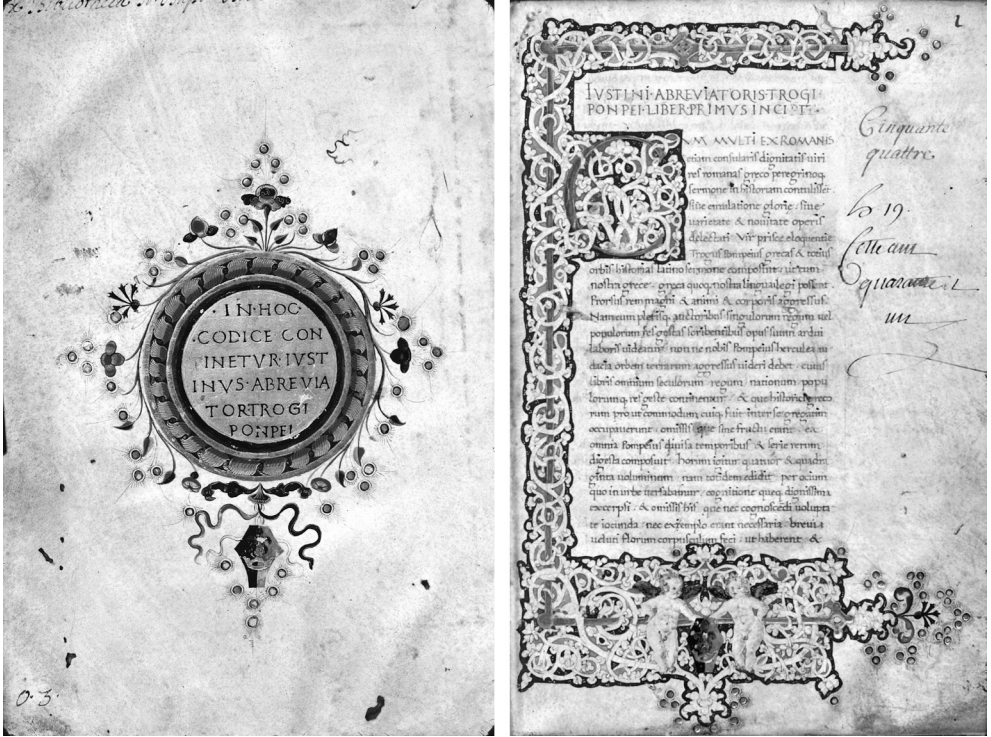 ·IN·HOC·
·CODICE CON
INETVR·IVST
INVS·ABREVIA
TOR·TROGI
PONPEI
O·3·
1
IVSTINI·ABREVIATORIS·TROGI·
PONPEI·LIBER·PRIMVS·INCIPT·
CVM MVLTI EX ROMANIS
etiam consularis dignitatis uiri
res romanas greco peregrinoq
sermone in historiam contulissēt
siue emulatione glorie · siue
uarietate & nouitate operis
delectati Vir prisce eloquentie
Trogus pompeius grecas & totius
orbis historias latino sermone composuit · ut cum
nostra grece · greca quoq nostra lingua legi possent
Prorsus rem magni & animi & corporis aggressus.
Nam cum plerisq auctoribus singulorum regum uel
populorum res gestas scribentibus opus suum ardui
laboris uideatur non ne nobis Pompeius herculea au
dacia orbem terrarum aggressus uideri debet · cuius
libris omnium seculorum regum nationum popu
lorumq res geste continentur & que historici grecoru
rum prout commodum cuiq fuit inter se gregatim
occupauerunt · omissis que sine fructu erant · ea
omnia Pompeius diuisa temporibus & serie rerum
digesta composuit horum igitur quatuor & quadra
ginta uoluminum nam totidem edidit per ocium
quo in urbe uersabamur · cognitione queq dignissima
excerpsi · & omissis his que nec cognoscedi uolupta
te iocunda nec exemplo erant necessaria · breue
ueluti florum corpusculum feci · ut haberent &
Cinquante
quattre.
h 19·
Cette cun
quarante
un